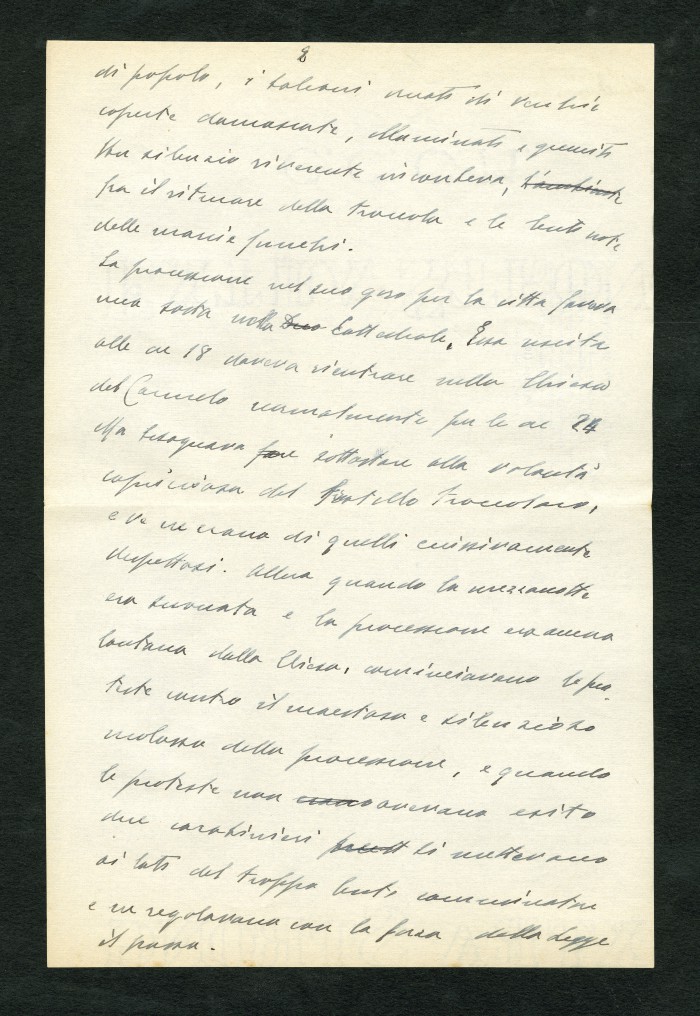 8
di popolo, i balconi ornati di vecchie
coperte damascate, illuminati e gremiti
Un silenzio riverente incombeva,
fra il ritmare della troccola e le lenti note
delle marcie funebri.
La processione nel suo giro per la città faceva
una sosta nella Duo Cattedrale. Essa uscita
alle ore 18 doveva rientrare nella Chiesa
del Carmelo normalmente per le ore 24
Ma bisognava fare sottostare alla volontà
capricciosa del fratello troccolaro,
e ve ne erano di quelli eccessivamente
dispettosi. Allora quando la mezzanotte
era suonata e la processione era ancora
lontana dalla Chiesa, cominciavano le pro
teste contro il maestoso e silenzioso
molosso della processione, e quando
le proteste non avevano esito
due carabinieri si mettevano
ai lati del troppo lento camminatore
e ne regolavano con la forza della Legge
il passo.